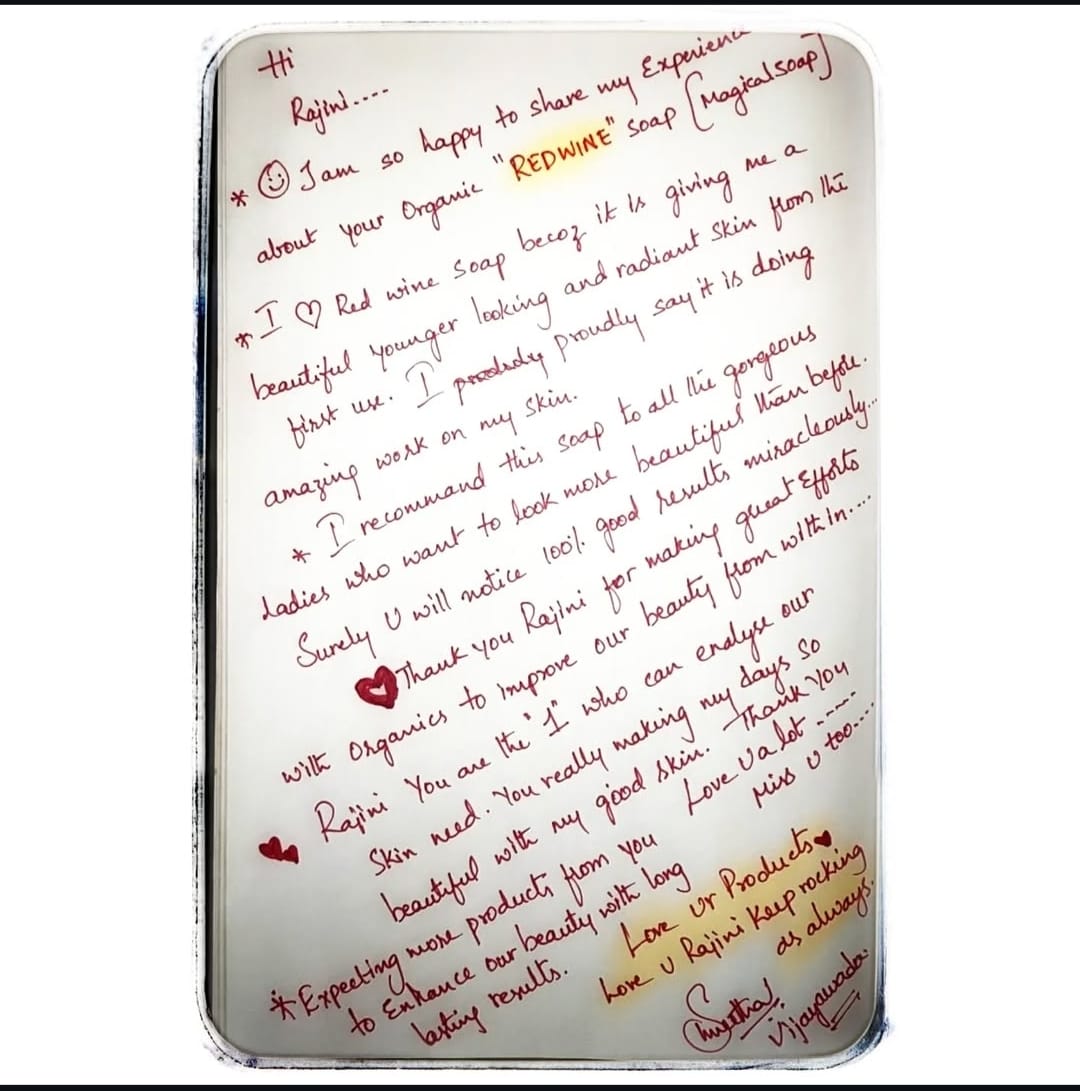 Hi
Rajini....
* ☺ I am so happy to share my Experience
about your Organic "REDWINE" soap [Magical soap]
* I ♡ Red wine soap becoz it is giving me a
beautiful younger looking and radiant skin from the
first use. I proudly say it is doing
amazing work on my skin.
* I recommand this soap to all the gorgeous
Ladies who want to look more beautiful than before.
Surely U will notice 100% good results miracleously...
♥ Thank you Rajini for making great Efforts
with Organics to improve our beauty from with in....
♥♥ Rajini You are the "1" who can enalyse our
skin need. You really making my days so
beautiful with my good skin. Thank You
Love U a lot -----
Miss U too....
* Expecting more products from you
to Enhance our beauty with long
lasting results.
Love Ur Products ♥
Love U Rajini Keep rocking
as always.
Vijayawada